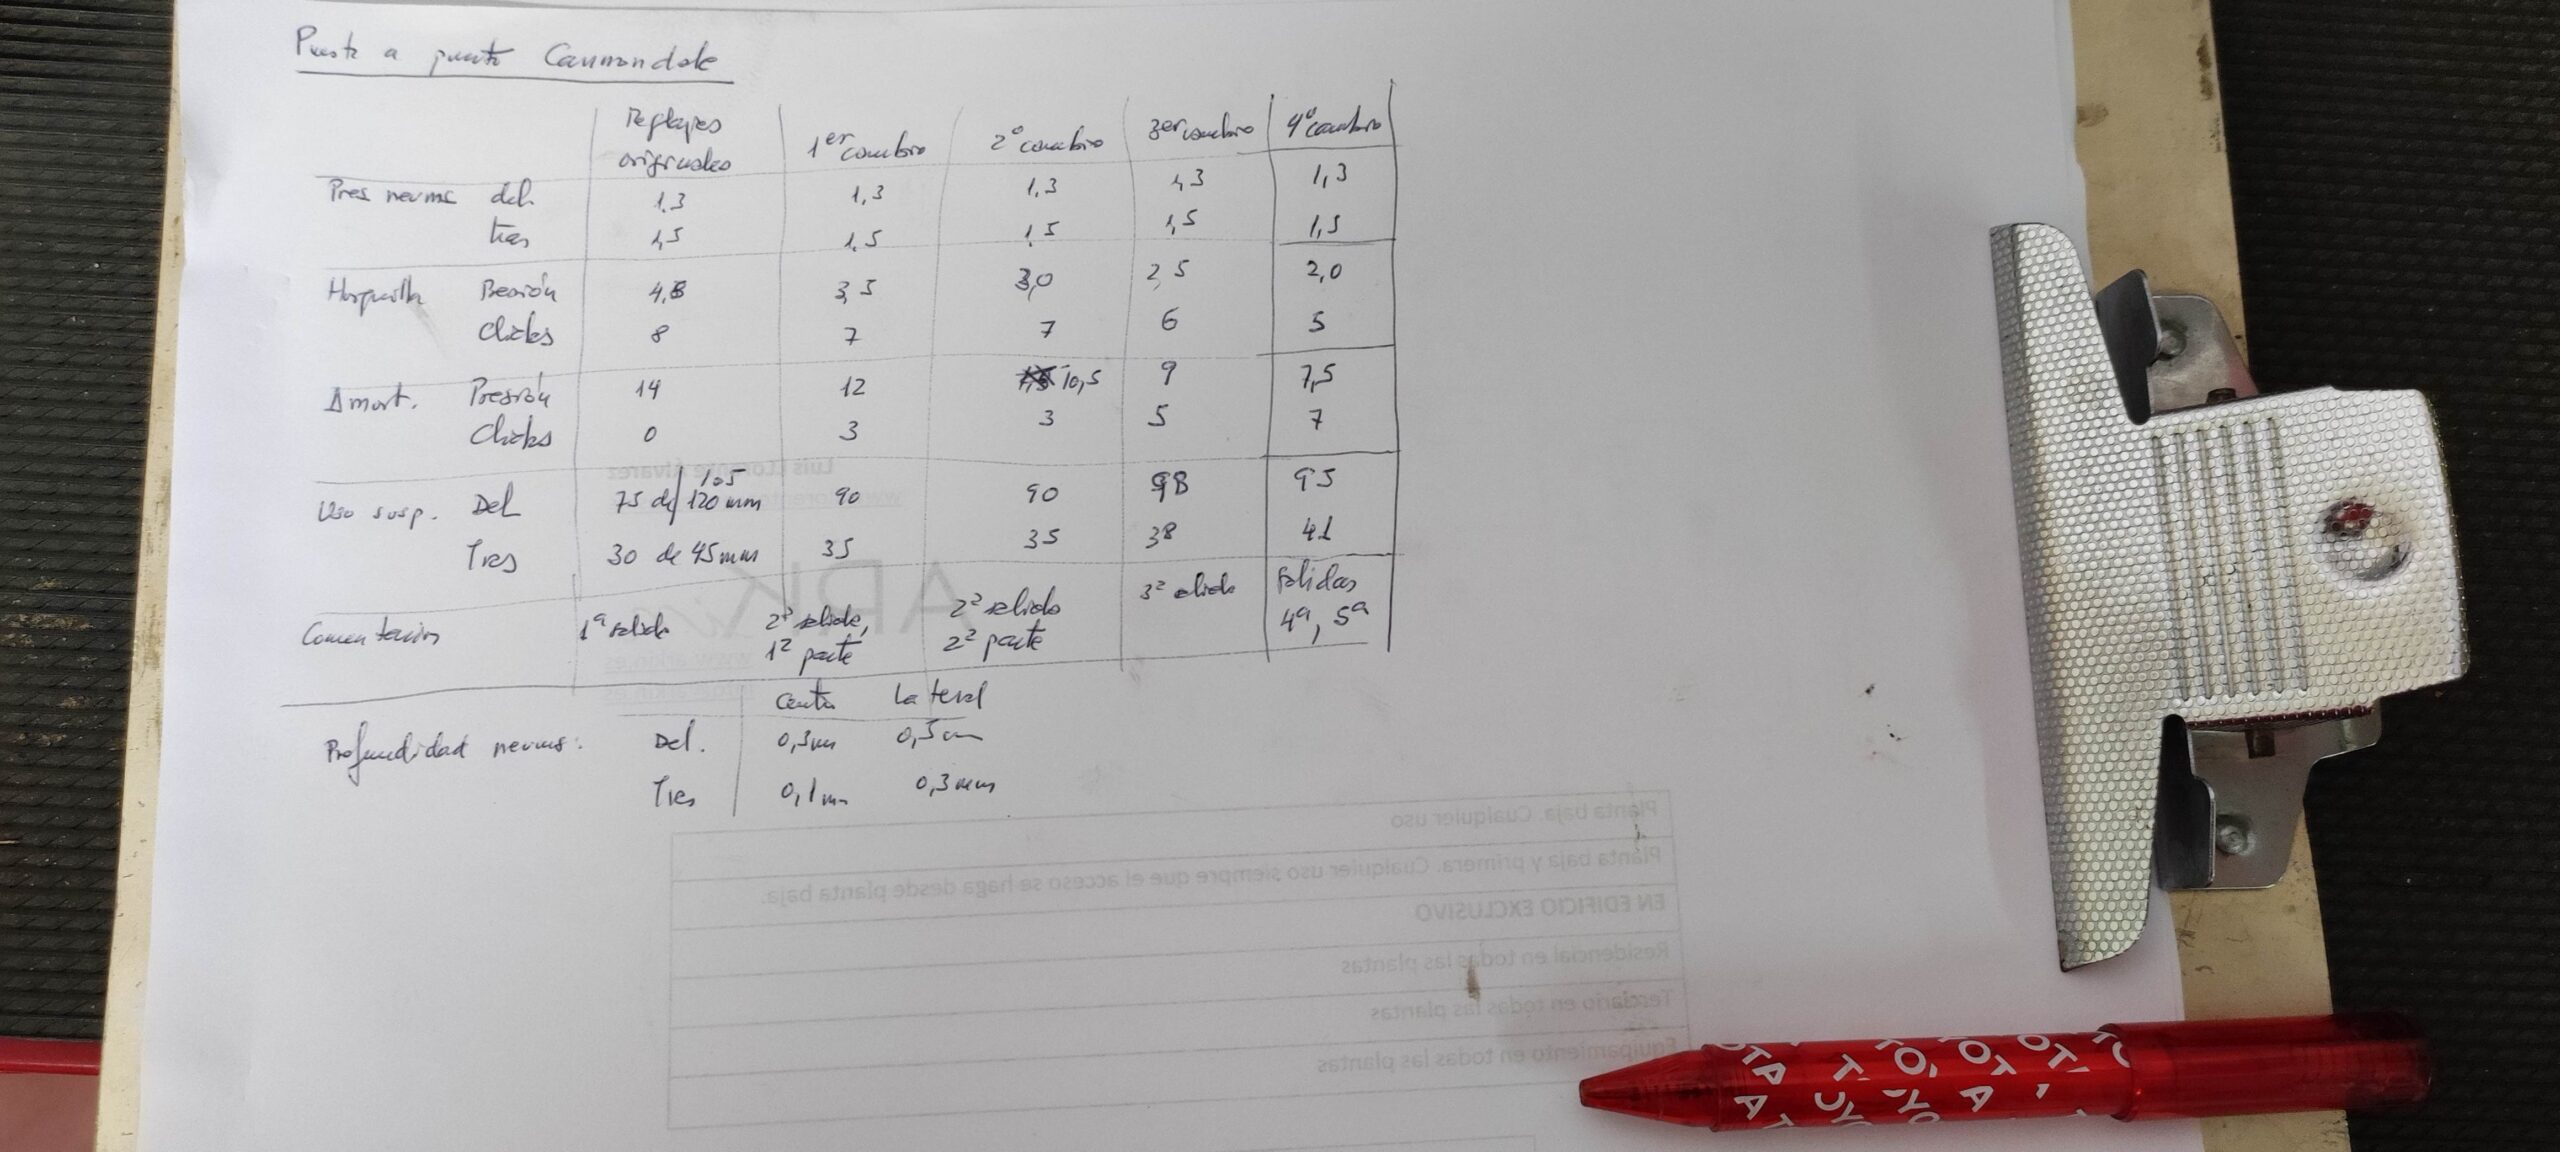 Puesta a punto Cannondale
Reglajes originales 1er cambio 2º cambio 3er cambio 4º cambio
Pres neums del. 1,3 1,3 1,3 1,3 1,3
tras 1,5 1,5 1,5 1,5 1,5
Horquilla Presión 3,5 3,0 2,5 2,0
Clicks 8 7 7 6 5
Amort. Presión 14 12 10,5 9 7,5
Clicks 0 3 3 5 7
Uso susp. Del 75 de/120 mm 105 90 90 98 95
Tras 30 de 45mm 35 35 38 41
Comentarios 1ª salida 2ª salida, 1ª parte 2ª salida 2ª parte 3ª salida Salidas 4ª, 5ª
Centro Lateral
Profundidad neums: Del. 0,3mm 0,5mm
Tras 0,1mm 0,3mm
Luis Llorente Álvarez
ARK
www.arkin.es
Planta baja. Cualquier uso
Planta baja y primera. Cualquier uso siempre que el acceso se haga desde planta baja.
EN EDIFICIO EXCLUSIVO
Residencial en todas las plantas
Terciario en todas las plantas
Equipamiento en todas las plantas